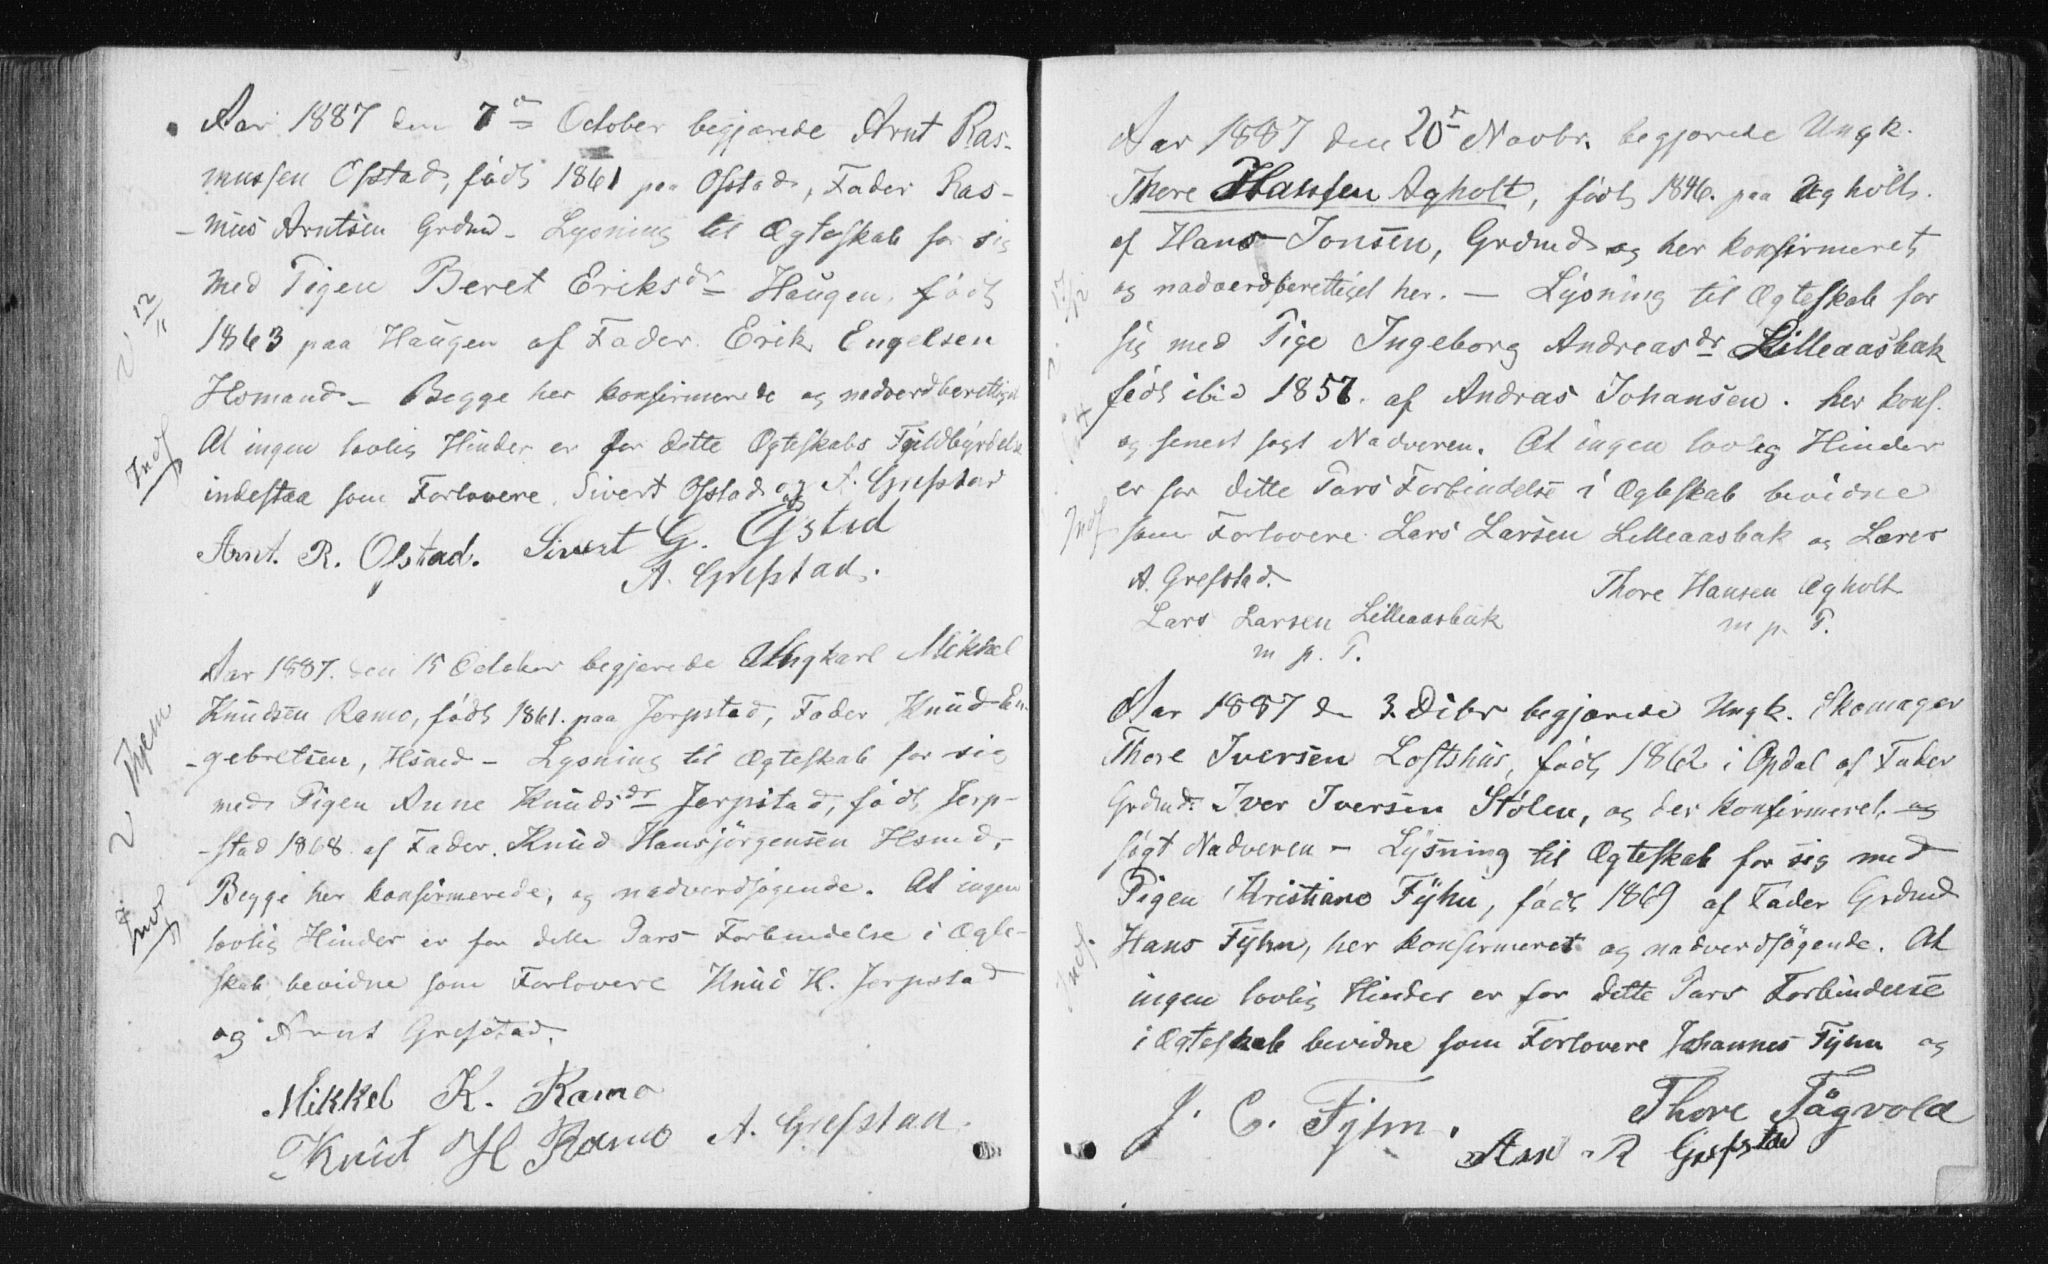 Aar 1887 den 7de October begjærede Arnt Ras-
mussen Ofstad, født 1861 paa Ofstad, Fader Ras-
-mus Arntsen Grdmd - Lysning til Ægteskab for sig
med Pigen Beret Eriksdr Haugen, født
1863 paa Haugen af Fader Erik Engelsen
Hsmand - Begge her konfirmerede og nadverdberettiget
At ingen lovlig Hinder er for dette Ægteskabs Fuldbyrdelse
indestaa som Forlovere Sivert Ofstad og A. Grefstad
Arnt. R. Ofstad. Sivert G. Ofstad
A. Grefstad.
Indf
Aar 1887. den 15 October begjærede Ungkarl Mikkel
Knudsen Ramo, født 1861. paa Jerpstad, Fader Knud En-
-gebretsen, Hsmd - Lysning til Ægteskab for sig
med Pigen Anne Knudsdr Jerpstad, født Jerp-
-stad 1868. af Fader Knud Hansjörgensen Hsmd.-
Begge her konfirmerede, og nadverdsøgende. At ingen
lovlig Hinder er for dette Pars Forbindelse i Ægte-
skab bevidne som Forlovere Knud H. Jerpstad
og Arnt Grefstad.
Mikkel K. Ramo
Knut H Ramo A. Grefstad.
2 Hjem
Indf
Aar 1887 den 20de Novbr. begjærede Ungk.
Thore Hansen Agholt, født 1846. paa Ægholt.
af Hans Jonsen, Grdmd og her konfirmeret
og nadverdberettiget her. - Lysning til Ægteskab for
sig med Pige Ingeborg Andreasdr Lilleaasbak
født ibid 1857. af Andras Johansen. her konf.
og senest søgt Nadveren. At ingen lovlig Hinder
er for dette Pars Forbindelse i Ægteskab bevidne
som Forlovere Lars Larsen Lilleaasbak og Lærer
A. Grefstad. Thore Hansen Ægholt
m p. P.
Lars Larsen Lilleaasbak
m p. P.
Indf
Aar 1887 d 3. Dcbr begjærede Ungk. Skomager
Thore Iversen Loftshus, født 1862 i Opdal af Fader
Grdmd. Iver Iversen Stölen, og der konfirmeret og
søgt Nadveren - Lysning til Ægteskab for sig med
Pigen Kristiane Fyhn, født 1869 af Fader Grdmd
Hans Fyhn, her konfirmeret og nadverdsøgende. At
ingen lovlig Hinder er for dette Pars Forbindelse
i Ægteskab bevidne som Forlovere Johannes Fyhn og
J. C. Fyhn. Thore Fagvold
Arnt R Grefstad
Indf.